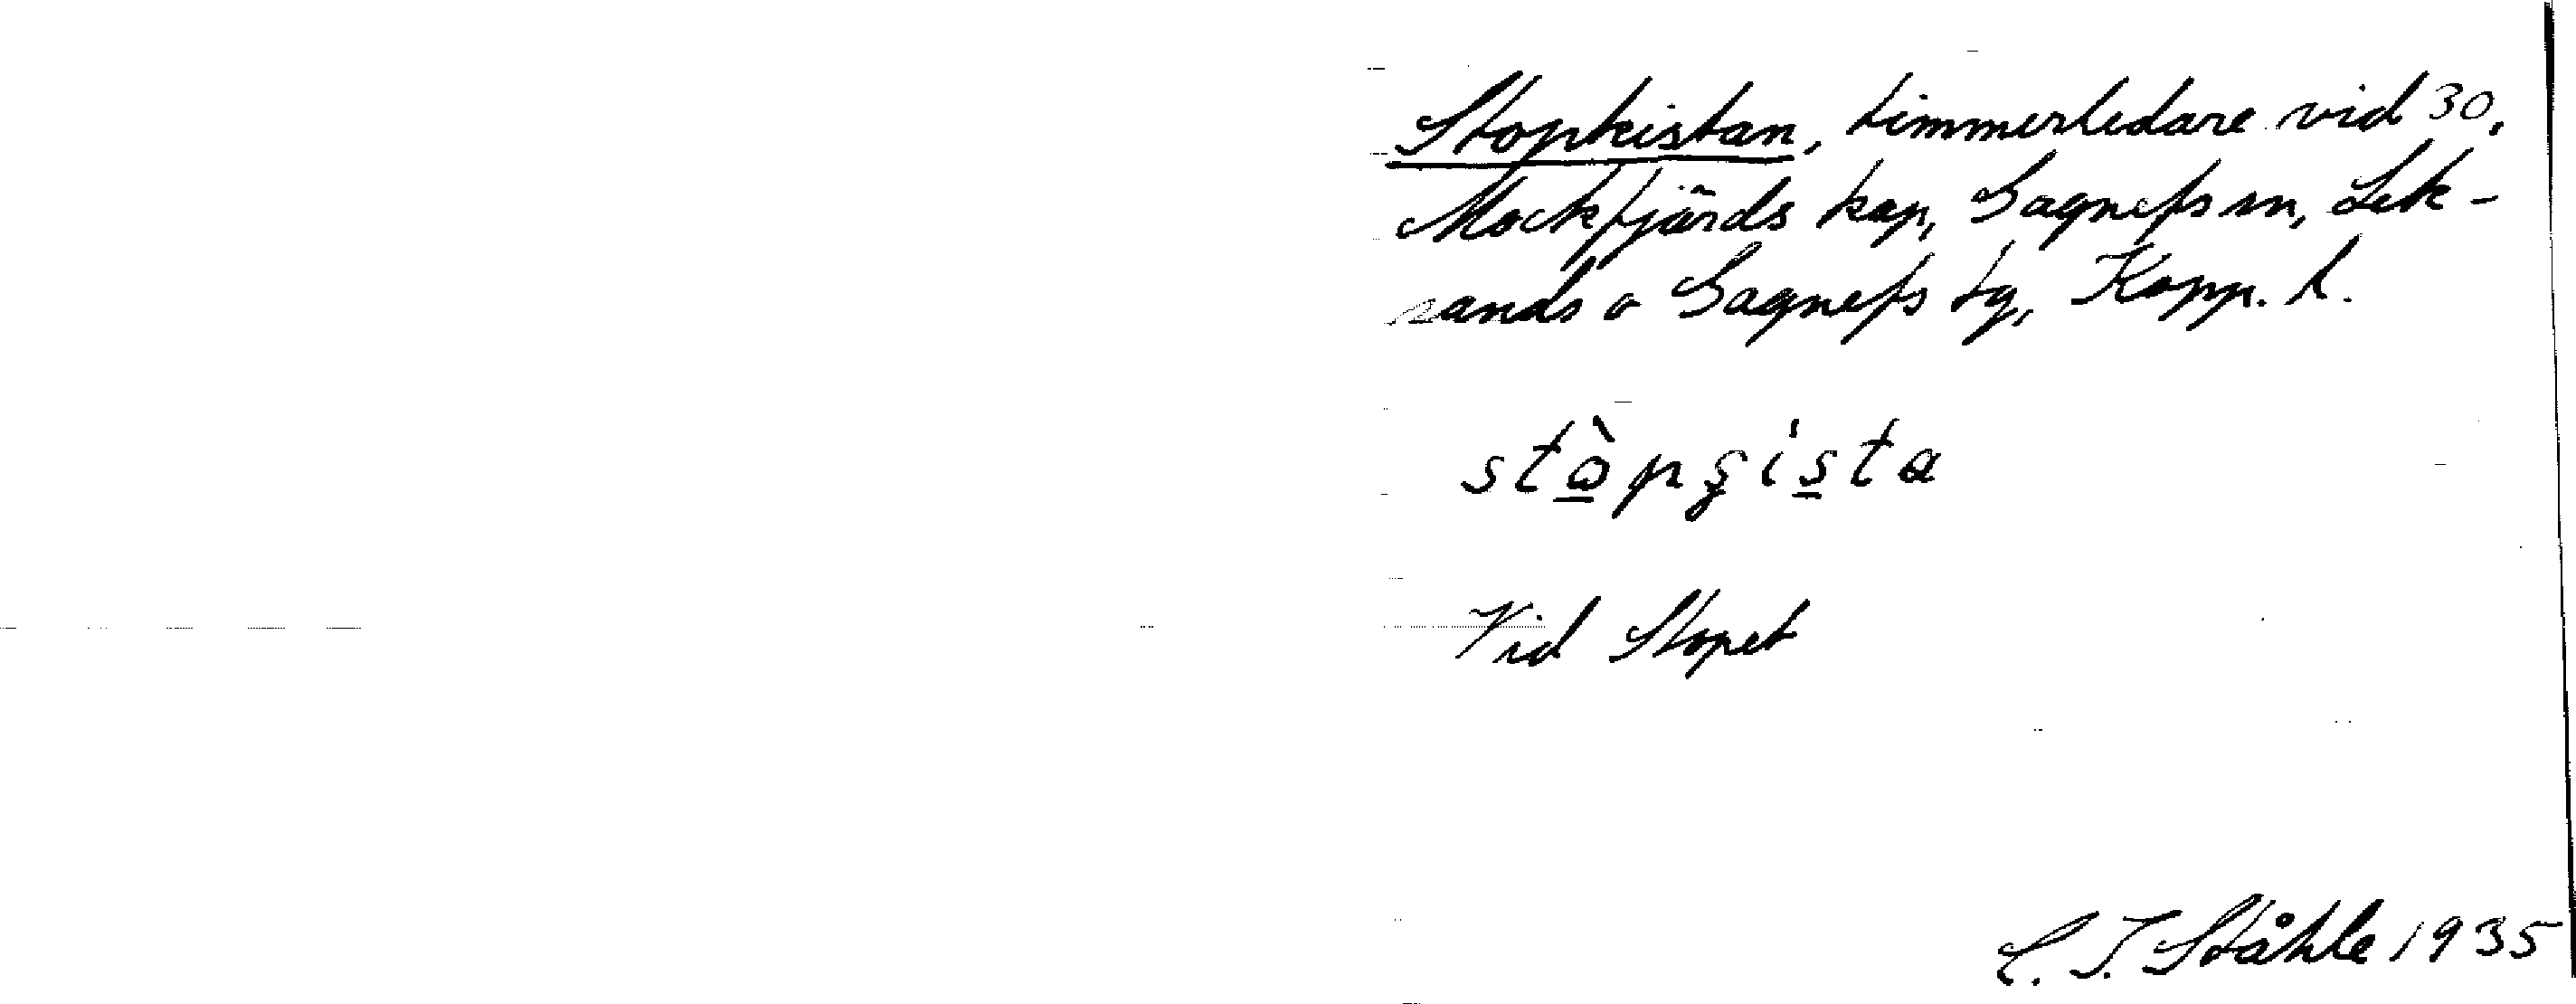 Stopkistan, timmerledare vid 30,
Mockfjärds kap, Gagnefs sn, Lek-
sands o Gagnefs tg, Kopp. l.
stòpşista
Vid Stopet
C. I. Ståhle 1935